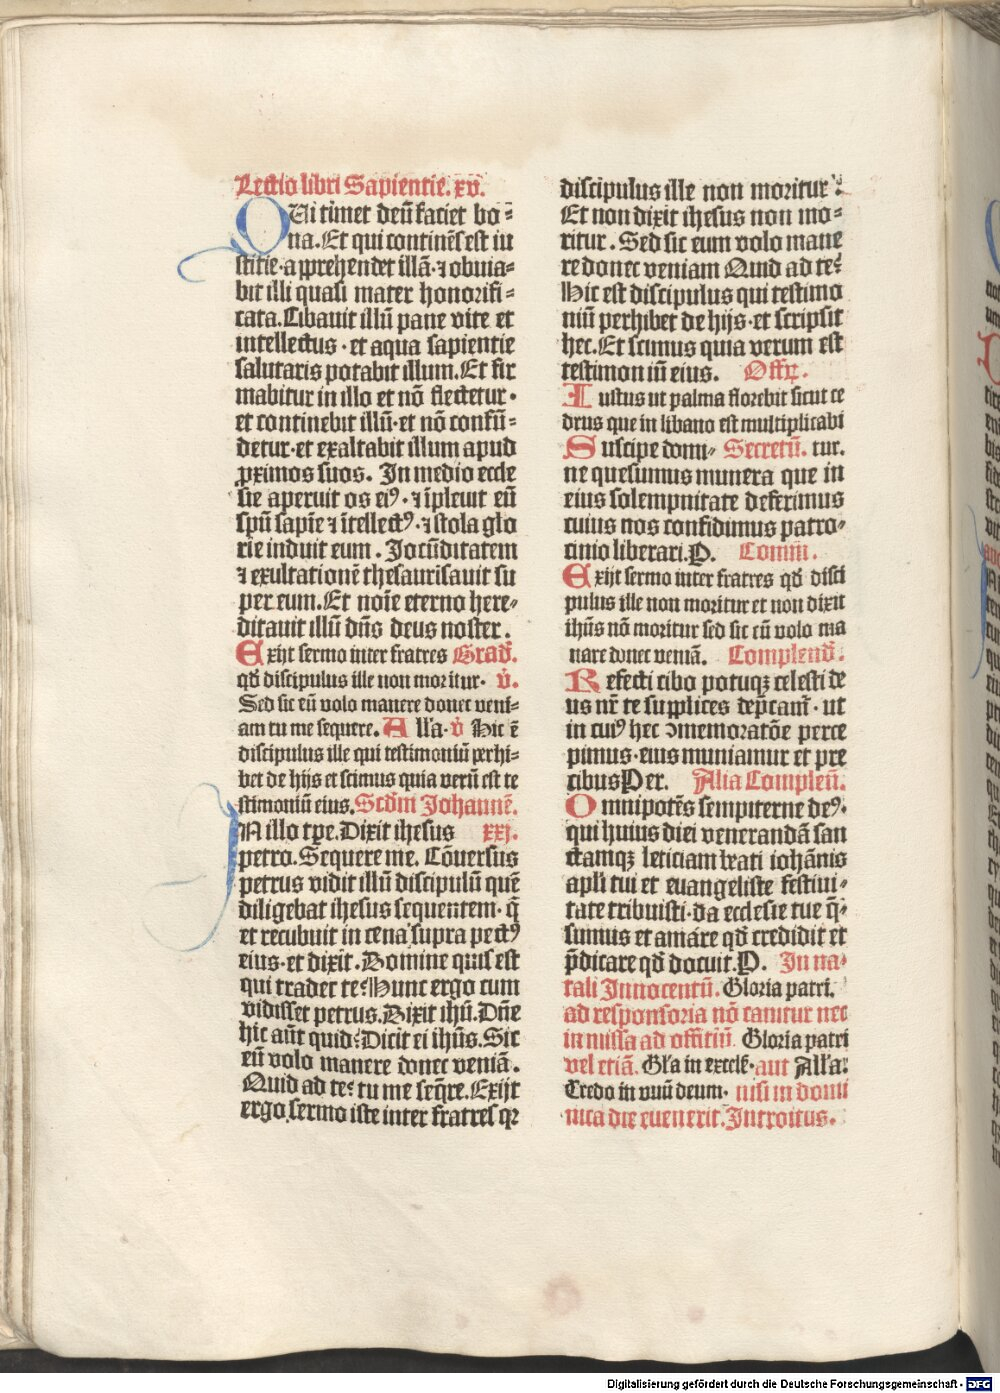 Lectio libri Sapientie. xv.
QVi timet deū faciet bo⸗
na. Et qui continēs est iu
stitie · apprehendet illā · ⁊ obuia⸗
bit illi quasi mater honorifi⸗
cata. Cibauit illū pane vite et
intellectus · et aqua sapientie
salutaris potabit illum. Et fir
mabitur in illo et nō flectetur ·
et continebit illū · et nō confū⸗
detur · et exaltabit illum apud
ꝓximos suos. In medio eccle
sie aperuit os eiꝰ · ⁊ īpleuit eū
spū sapīe ⁊ ītellectꝰ · ⁊ stola glo
rie induit eum. Jocūditatem
⁊ exultationē thesaurisauit su
per eum. Et noīe eterno here⸗
ditauit illū dn̄s deus noster.
Exijt sermo inter fratres Grad̄.
qd̄ discipulus ille non moritur · v̄.
Sed sic eū volo manere donec veni⸗
am tu me sequere. All'a · v̄ Hic ē
discipulus ille qui testimoniū perhi⸗
bet de hijs et scimus quia verū est te
stimoniū eius. Scd̄m Johannē.
IN illo tp̄e. Dixit ihesus xxj.
petro. Sequere me. Cōuersus
petrus vidit illū discipulū quē
diligebat ihesus sequentem · q̄
et recubuit in cena supra pectꝰ
eius · et dixit. Domine quis est
qui tradet te? Hunc ergo cum
vidisset petrus. Dixit ihū. Dn̄e
hic aūt quid? Dicit ei ihūs. Sic
eū volo manere donec veniā.
Quid ad te? tu me seq̄re. Exijt
ergo sermo iste inter fratres qꝛ
discipulus ille non moritur.
Et non dixit ihesus non mo⸗
ritur. Sed sic eum volo mane
re donec veniam Quid ad te?
Hic est discipulus qui testimo
niū perhibet de hijs · et scripsit
hec. Et scimus quia verum est
testimoniū eius. Offꝛ.
Iustus ut palma florebit sicut ce
drus que in libano est multiplicabi
Suscipe domi⸗ Secretū. tur.
ne quesumus munera que in
eius solempnitate deferimus
cuius nos confidimus patro⸗
cinio liberari. P. Comm̄.
Exijt sermo inter fratres qd̄ disci
pulus ille non moritur et non dixit
ihūs nō moritur sed sic eū volo ma
nare donec veniā. Complend̄.
Refecti cibo potuqꝫ celesti de
us nr̄ te supplices dep̄camᷣ · ut
in cuiꝰ hec ꝯmemoratōe perce
pimus · eius muniamur et pre
cibus Per. Alia Complen̄.
Omnipotēs sempiterne deꝰ ·
qui huius diei venerandā san
ctamqꝫ leticiam beati iohānis
apl̄i tui et euangeliste festiui⸗
tate tribuisti · da ecclesie tue q̄⸗
sumus et amare qd̄ credidit et
p̄dicare qd̄ docuit. P. In na⸗
tali Innocentū. Gloria patri.
ad responsoria nō canitur nec
in missa ad offitiū Gloria patri
vel etiā. Gl'a in excels̄ · aut All'a.
Credo in vnū deum · nisi in domi
nica die euenerit. Introitus.
Digitalisierung gefördert durch die Deutsche Forschungsgemeinschaft - DFG